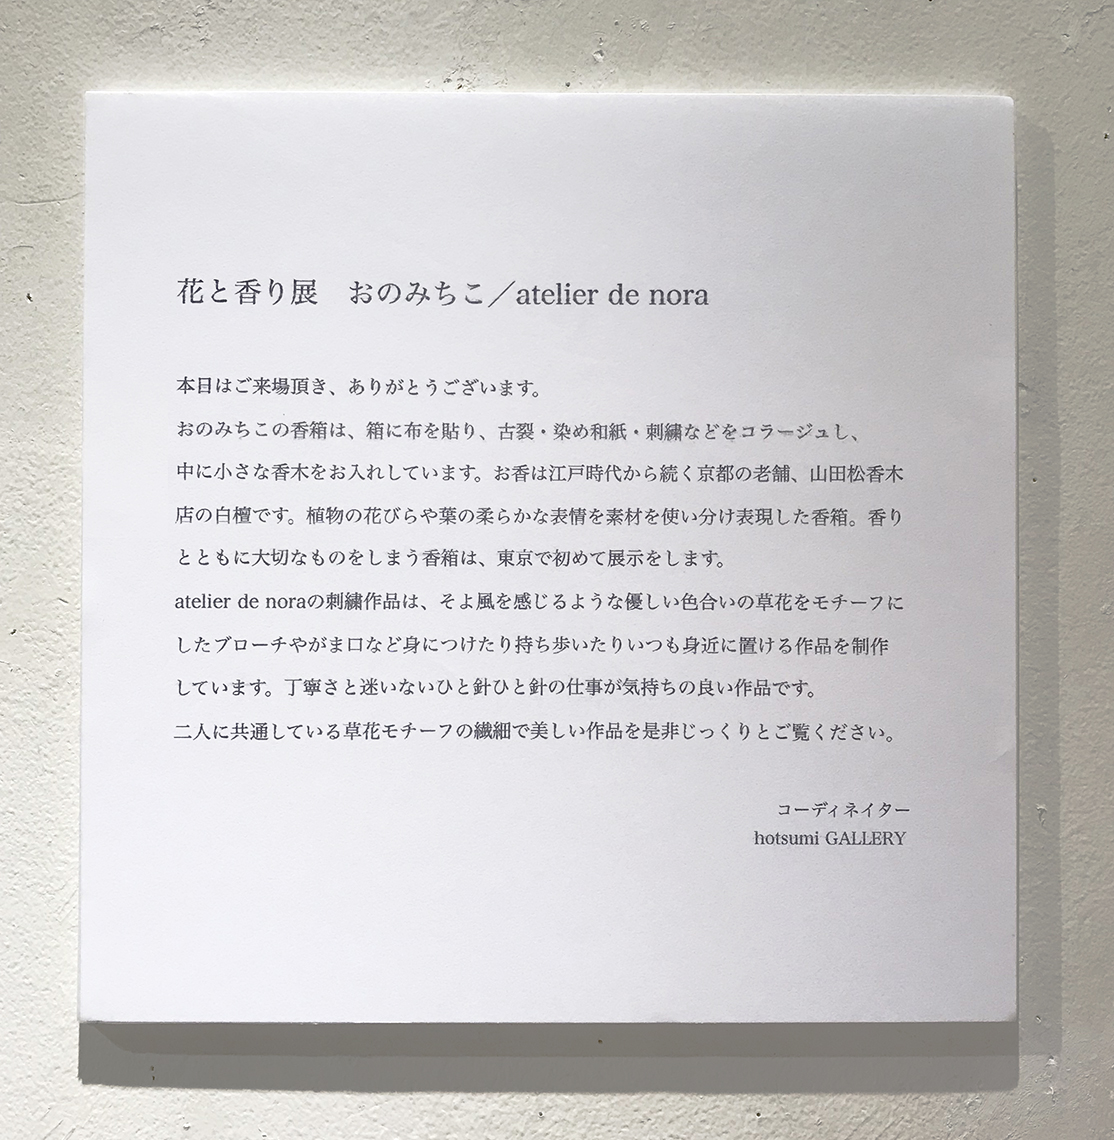 花と香り展　おのみちこ／atelier de nora
本日はご来場頂き、ありがとうございます。
おのみちこの香箱は、箱に布を貼り、古裂・染め和紙・刺繍などをコラージュし、
中に小さな香木をお入れしています。お香は江戸時代から続く京都の老舗、山田松香木
店の白檀です。植物の花びらや葉の柔らかな表情を素材を使い分け表現した香箱。香り
とともに大切なものをしまう香箱は、東京で初めて展示をします。
atelier de noraの刺繍作品は、そよ風を感じるような優しい色合いの草花をモチーフに
したブローチやがま口など身につけたり持ち歩いたりいつも身近に置ける作品を制作
しています。丁寧さと迷いないひと針ひと針の仕事が気持ちの良い作品です。
二人に共通している草花モチーフの繊細で美しい作品を是非じっくりとご覧ください。
コーディネイター
hotsumi GALLERY